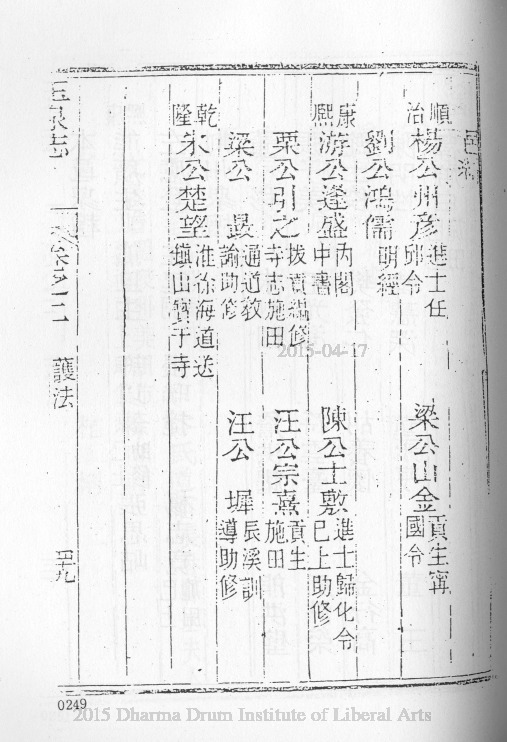 邑紳
順治
楊公州彥 進士任邱令
梁公山金 貢生寧國令
劉公鴻儒 明經
康熙
游公逢盛 內閣中書
陳公士敷 進士歸化令已上助修
栗公引之 拔貢編修寺志施田
汪公宗熹 貢生施田
梁公晸 通道教諭助修
汪公墀 辰溪訓導助修
乾隆
朱公楚望 淮徐海道送鎮山寶于寺
玉泉志 卷之二 護法 四九
2015-04-17
0249
2015 Dharma Drum Institute of Liberal Arts